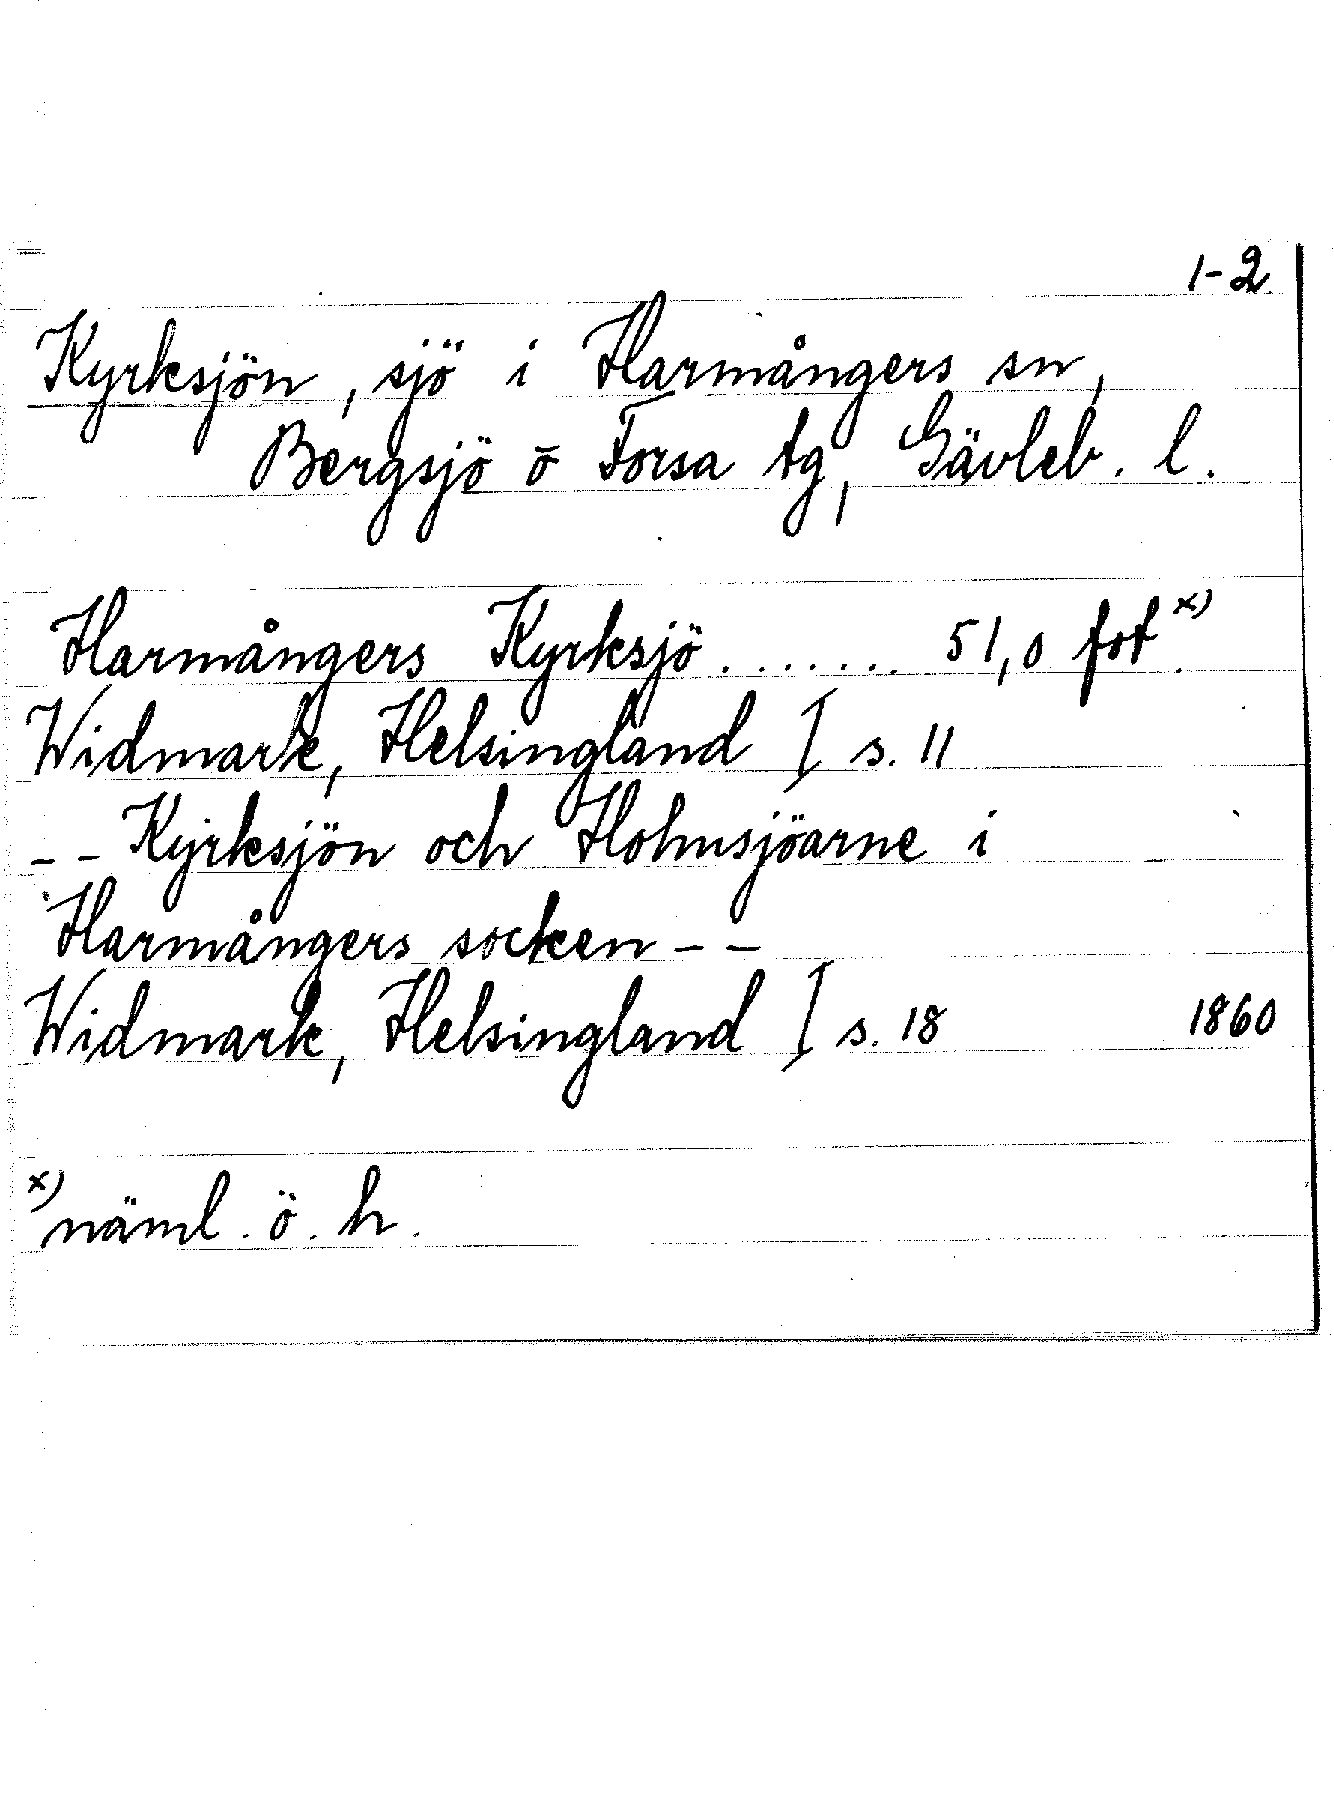 1-2
Kyrksjön, sjö i Harmångers sn,
Bergsjö o Forsa tg, Gävleb. l.
Harmångers Kyrksjö ....... 51,0 fot x).
Widmark, Helsingland I s. 11
-- Kyrksjön och Holmsjöarne i
Harmångers socken --
Widmark, Helsingland I s. 18 1860
x) näml. ö. h.